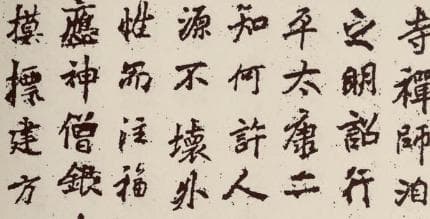 寺禪師泊
之明詔行
平太康二
知何許人
源不壞外
性而注福
應神僧銀
摸標建方